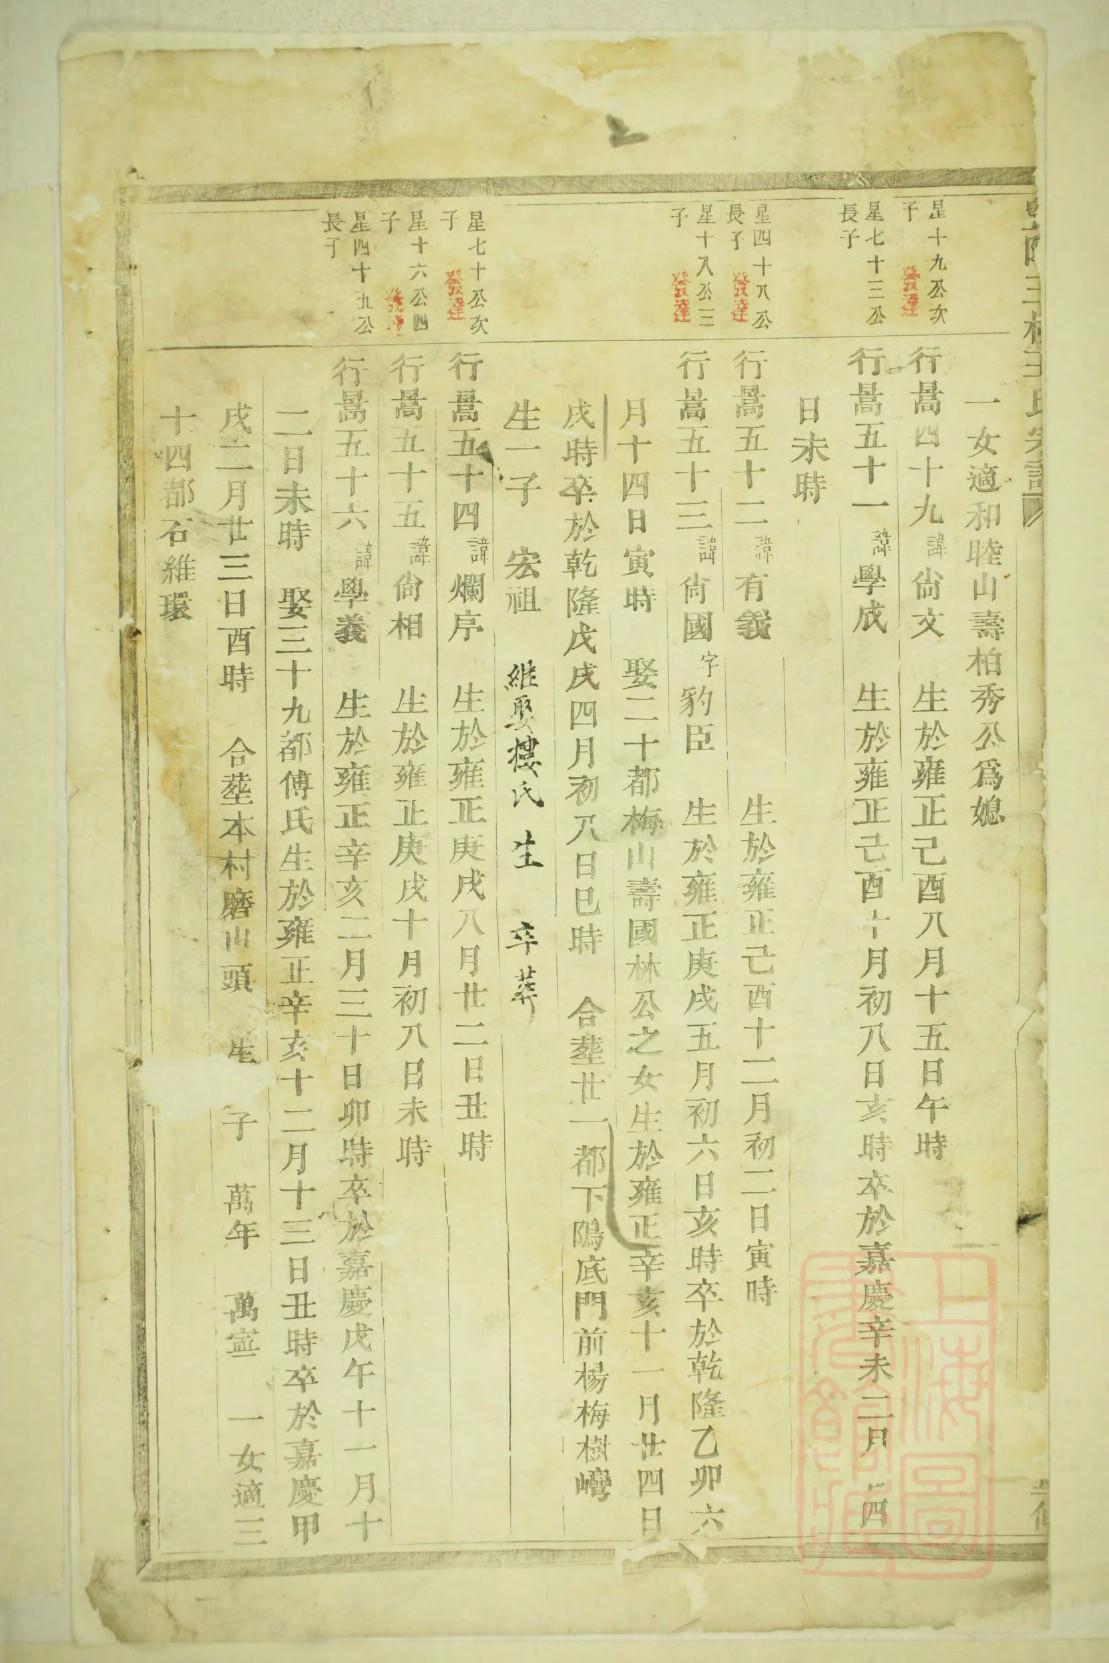 一女適和睦山壽柏秀公爲媳
星十九公次子
發達
行暠四十九諱尙文 生於雍正己酉八月十五日午時
星七十三公長子
行暠五十一諱學成 生於雍正己酉十月初八日亥時卒於嘉慶辛未二月 四
日未時
星四十八公長子
發達
行暠五十二諱有義 生於雍正己酉十二月初二日寅時
星十八公三子
發達
行暠五十三諱尙國字豹臣 生於雍正庚戌五月初六日亥時卒於乾隆乙卯六
月十四日寅時 娶二十都梅山壽國林公之女生於雍正辛亥十一月廿四日
戌時卒於乾隆戊戌四月初八日巳時 合塟廿一都下隖底門前楊梅樹灣
生一子 宏祖 継娶樓氏 生 卒 葬
星七十公次子
發達
行暠五十四諱爛序 生於雍正庚戌八月廿二日丑時
星十六公四子
發達
行暠五十五諱尙相 生於雍正庚戌十月初八日未時
星四十五公長子
行暠五十六諱學義 生於雍正辛亥二月三十日卯時卒於嘉慶戊午十一月十
二日未時 娶三十九都傅氏生於雍正辛亥十二月十三日丑時卒於嘉慶甲
戌二月廿三日酉時 合塟本村磨山頭 生 子 萬年 萬寍 一女適三
十四都石維環
上海圖書館藏